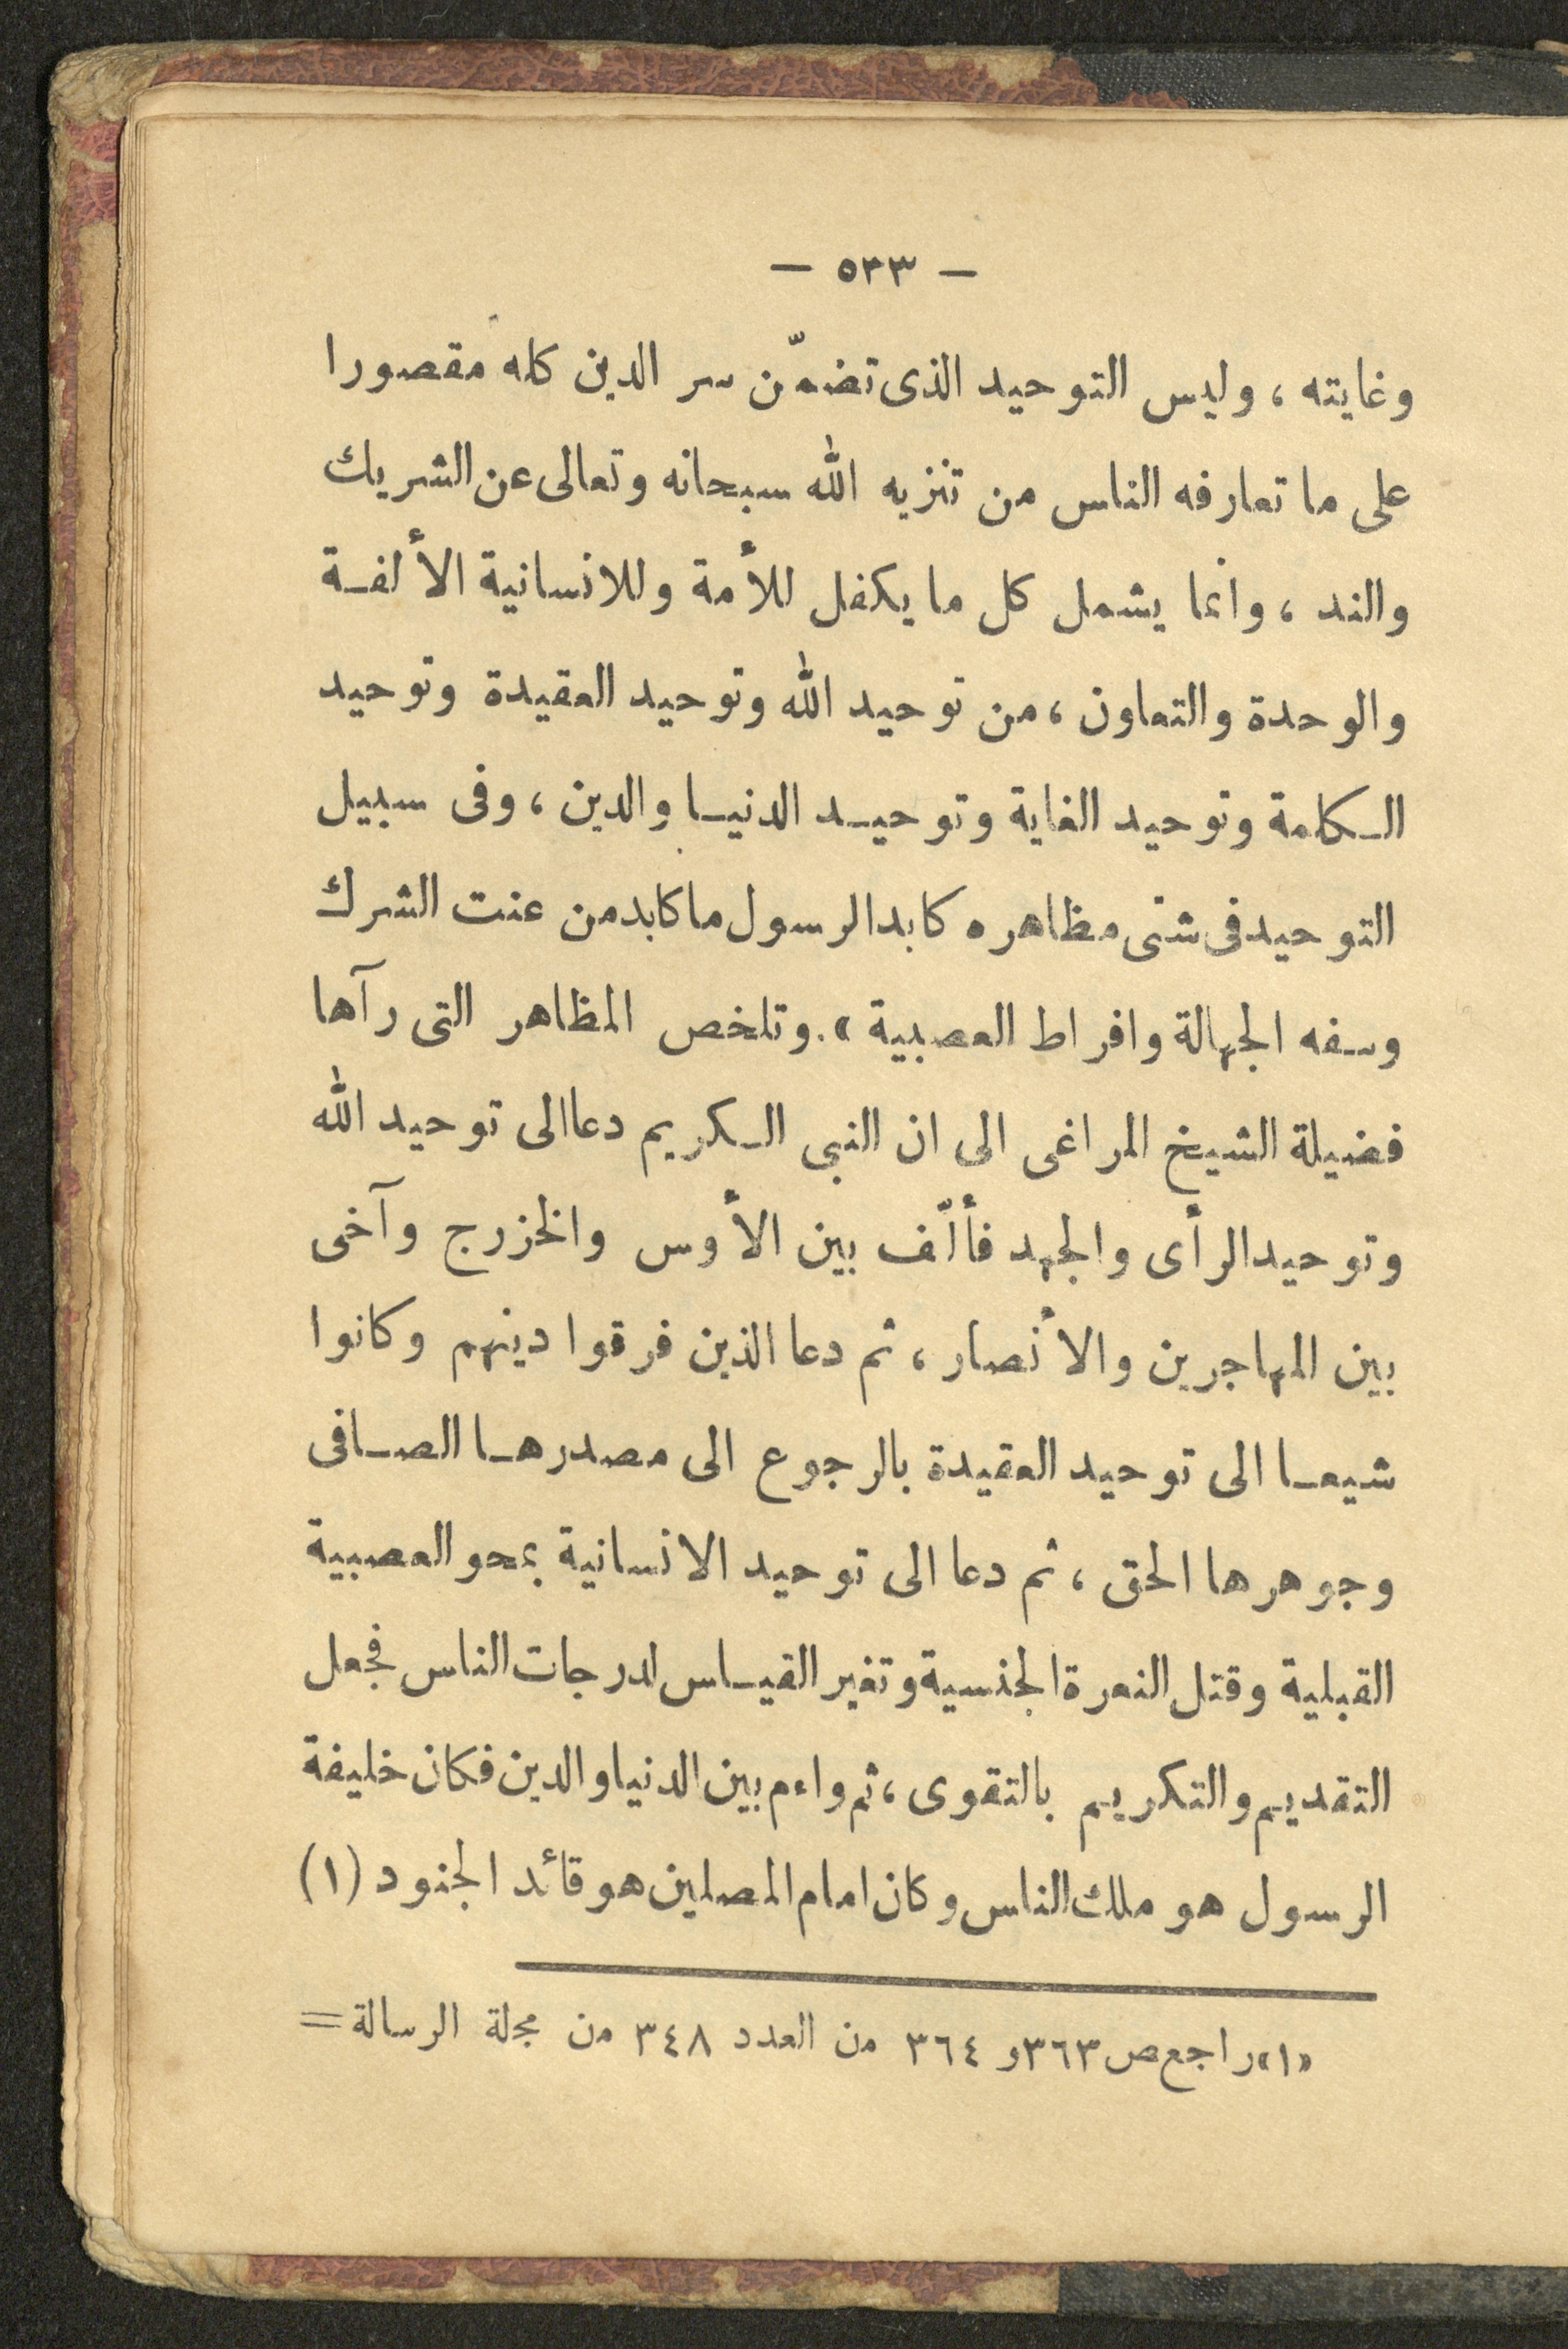 — ٥٣٣ —
وغايته ، وليس التوحيد الذى تضمّن سر الدين كله مقصورا
على ما تعارفه الناس من تنزيه الله سبحانه وتعالى عن الشريك
والند ، وانما يشمل كل ما يكفل للأمة وللانسانية الألفة
والوحدة والتعاون ، من توحيد الله وتوحيد العقيدة وتوحيد
الكلمة وتوحيد الغاية وتوحيد الدنيا والدين ، وفى سبيل
التوحيد فى شتى مظاهره كابد الرسول ما كابد من عنت الشرك
وسفه الجهالة وافراط العصبية » . وتلخص المظاهر التى رآها
فضيلة الشيخ المراغى الى ان النبى الكريم دعا الى توحيد الله
وتوحيد الرأى والجهد فألّف بين الأوس والخزرج وآخى
بين المهاجرين والأنصار ، ثم دعا الذين فرقوا دينهم وكانوا
شيعا الى توحيد العقيدة بالرجوع الى مصدرها الصافى
وجوهرها الحق ، ثم دعا الى توحيد الانسانية بمحو العصبية
القبلية وقتل النعرة الجنسية وتغير القياس لدرجات الناس فجعل
التقديم والتكريم بالتقوى ، ثم واءم بين الدنيا والدين فكان خليفة
الرسول هو ملك الناس وكان امام المصلين هو قائد الجنود (١)
«١» راجع ص ٣٦٣ و ٣٦٤ من العدد ٣٤٨ من مجلة الرسالة =